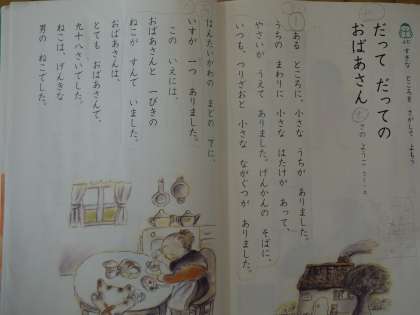 すきな ところを さがして、よもう
だって だっての
おばあさん
さの ようこ
ある ところに、小さな うちが ありました。
うちの まわりに 小さな はたけが あって、
やさいが うえて ありました。げんかんの そばに、
いつも、つりざおと 小さな ながぐつが ありました。
はんたいがわの まどの 下に、
いすが 一つ ありました。
この いえには、
おばあさんと 一ぴきの
ねこが すんで いました。
おばあさんは、
とても おばあさんで、
九十八さいでした。
ねこは、げんきな
男の ねこでした。